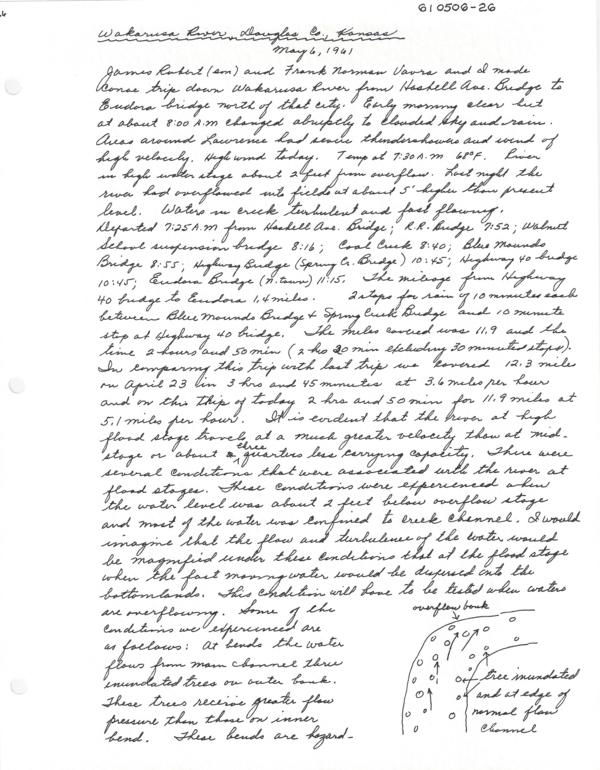 610506-26
Wakarusa River, Douglas Co., Kansas
May 6, 1961
James Robert (son) and Frank Norman Vavra and I made
canoe trip down Wakarusa River from Haskell Ave. Bridge to
Eudora bridge north of that city. Early morning clear but
at about 8:00 A.M changed abruptly to clouded sky and rain.
Areas around Lawrence had severe thundershowers and wind of
high velocity. High wind today. Temp at 7:30 A.M 68°F. River
in high water stage about 2 feet from overflow. Last night the
river had overflowed into fields at about 5' higher than present
level. Waters in creek turbulent and fast flowing.
Departed 7:25 A.M from Haskell Ave. Bridge; R.R. bridge 7:52; Walnut
School suspension bridge 8:16; Coal Creek 8:40; Blue Mounds
Bridge 8:55; Highway Bridge (Spring Cr. Bridge) 10:45; Highway 40 bridge
10:45; Eudora Bridge (N. town) 11:15. The mileage from Highway
40 bridge to Eudora 1.4 miles. 2 stops for rain of 10 minutes each
between Blue Mounds Bridge & Spring Creek Bridge and 10 minute
stop at Highway 40 bridge. The miles covered was 11.9 and the
time 2 hours and 50 min (2 hrs 20 min excluding 30 minutes stops).
In comparing this trip with last trip we covered 12.3 miles
on April 23 in 3 hrs and 45 minutes at 3.6 miles per hour
and on this trip of today 2 hrs and 50 min for 11.9 miles at
5.1 miles per hour. It is evident that the river at high
flood stage travels at a much greater velocity than at mid-
stage or about three quarters less carrying capacity. There were
several conditions that were associated with the river at
flood stages. These conditions were experienced when
the water level was about 2 feet below overflow stage
and most of the water was confined to creek channel. I would
imagine that the flow and turbulence of the water would
be magnified under these conditions that at the flood stage
when the fast moving water would be dispersed into the
bottomlands. This condition will have to be tested when waters
are overflowing. Some of the
conditions we experienced are
as follows: At bends the water
flows from main channel thru
inundated trees on outer bank.
These trees receive greater flow
pressure than those on inner
bend. These bends are hazard-
overflow bank
tree inundated
and at edge of
normal flow
channel